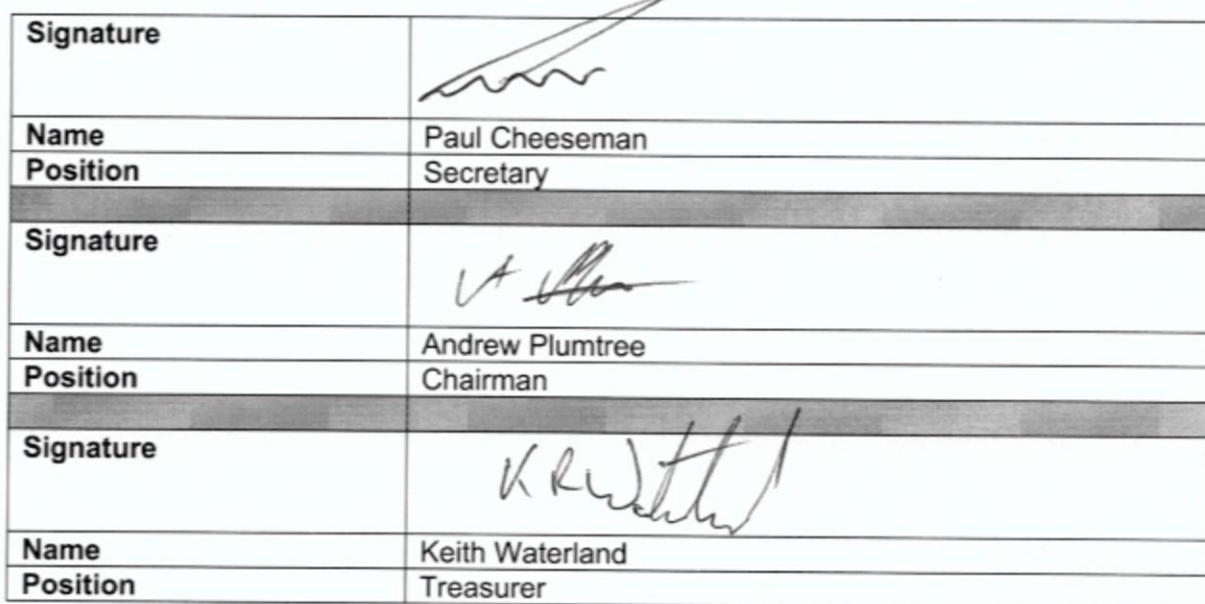 Signature
Name Paul Cheeseman
Position Secretary
Signature
Name Andrew Plumtree
Position Chairman
Signature
Name Keith Waterland
Position Treasurer